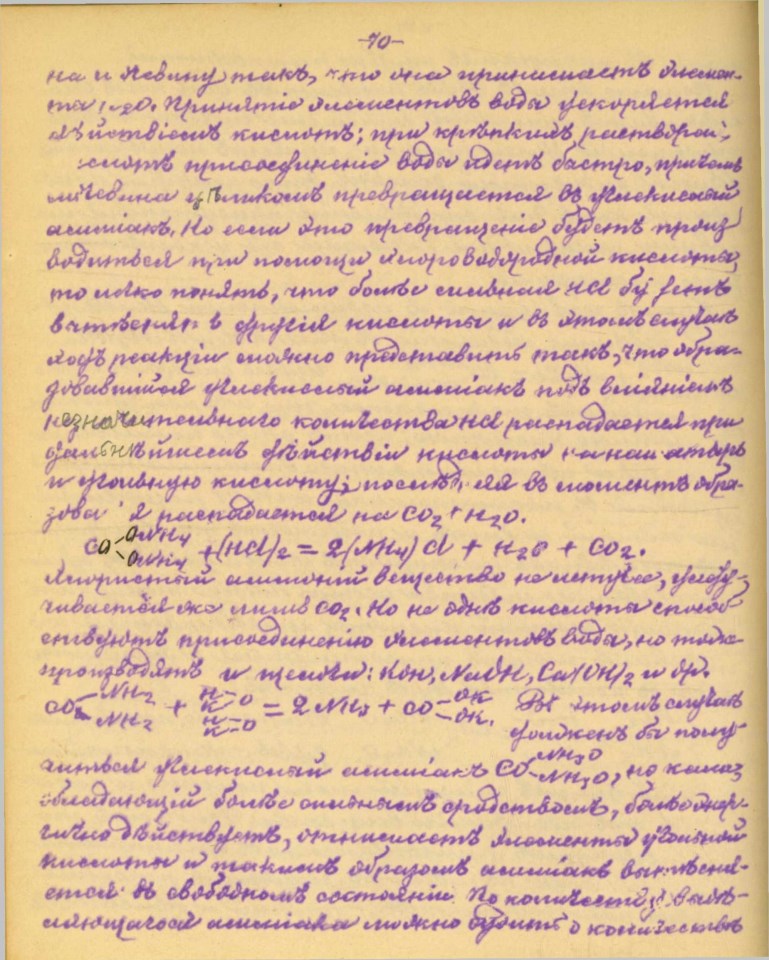 -70-
на мочевину такъ, что она принимаетъ элемен-
ты H2O. Принятіе элементовъ воды ускоряется
дѣйствіемъ кислотъ; при крѣпкихъ раствора[хъ]
кислотъ присоединеніе воды идетъ быстро, причемъ
мочевина цѣликомъ превращается въ углекислый
амміакъ. Но если это превращеніе будетъ произ
водиться при помощи хлороводородной кислоты,
то легко понять, что болѣе сильная HCl будетъ
вытѣснять другія кислоты и въ этомъ случаѣ
ходъ реакціи можно представить такъ, что обра-
зовавшійся углекислый амміакъ подъ вліяніемъ
незначительнаго количества HCl распадается при
дальнѣйшемъ дѣйствіи кислоты на нашатырь
и угольную кислоту; послѣдняя въ моментъ обра-
зованія распадается на CO2 + H2O.
CO<ONH4 ONH4 + (HCl)2 = 2(NH4)Cl + H2O + CO2.
Хлористый аммоній вещество не летучее, улету-
чивается же лишь CO2. Но не однѣ кислоты способ
ствуютъ присоединенію элементовъ воды, но тоже
производятъ и щелочи: KOH, NaOH, Ca(OH)2 и др.
CO<NH2 NH2 + H K>O H K>O = 2NH3 + CO<OK OK. Въ этомъ случаѣ
долженъ бы полу
читься углекислый амміакъ CO<NH4O NH4O, но кали,
обладающій болѣе сильнымъ сродствомъ, болѣе энер-
гично дѣйствуетъ, отнимаетъ элементы угольной
кислоты и такимъ образомъ амміакъ вытѣсня-
ется въ свободномъ состояніи. По количеству выдѣ-
ляющагося амміака можно судить о количествѣ